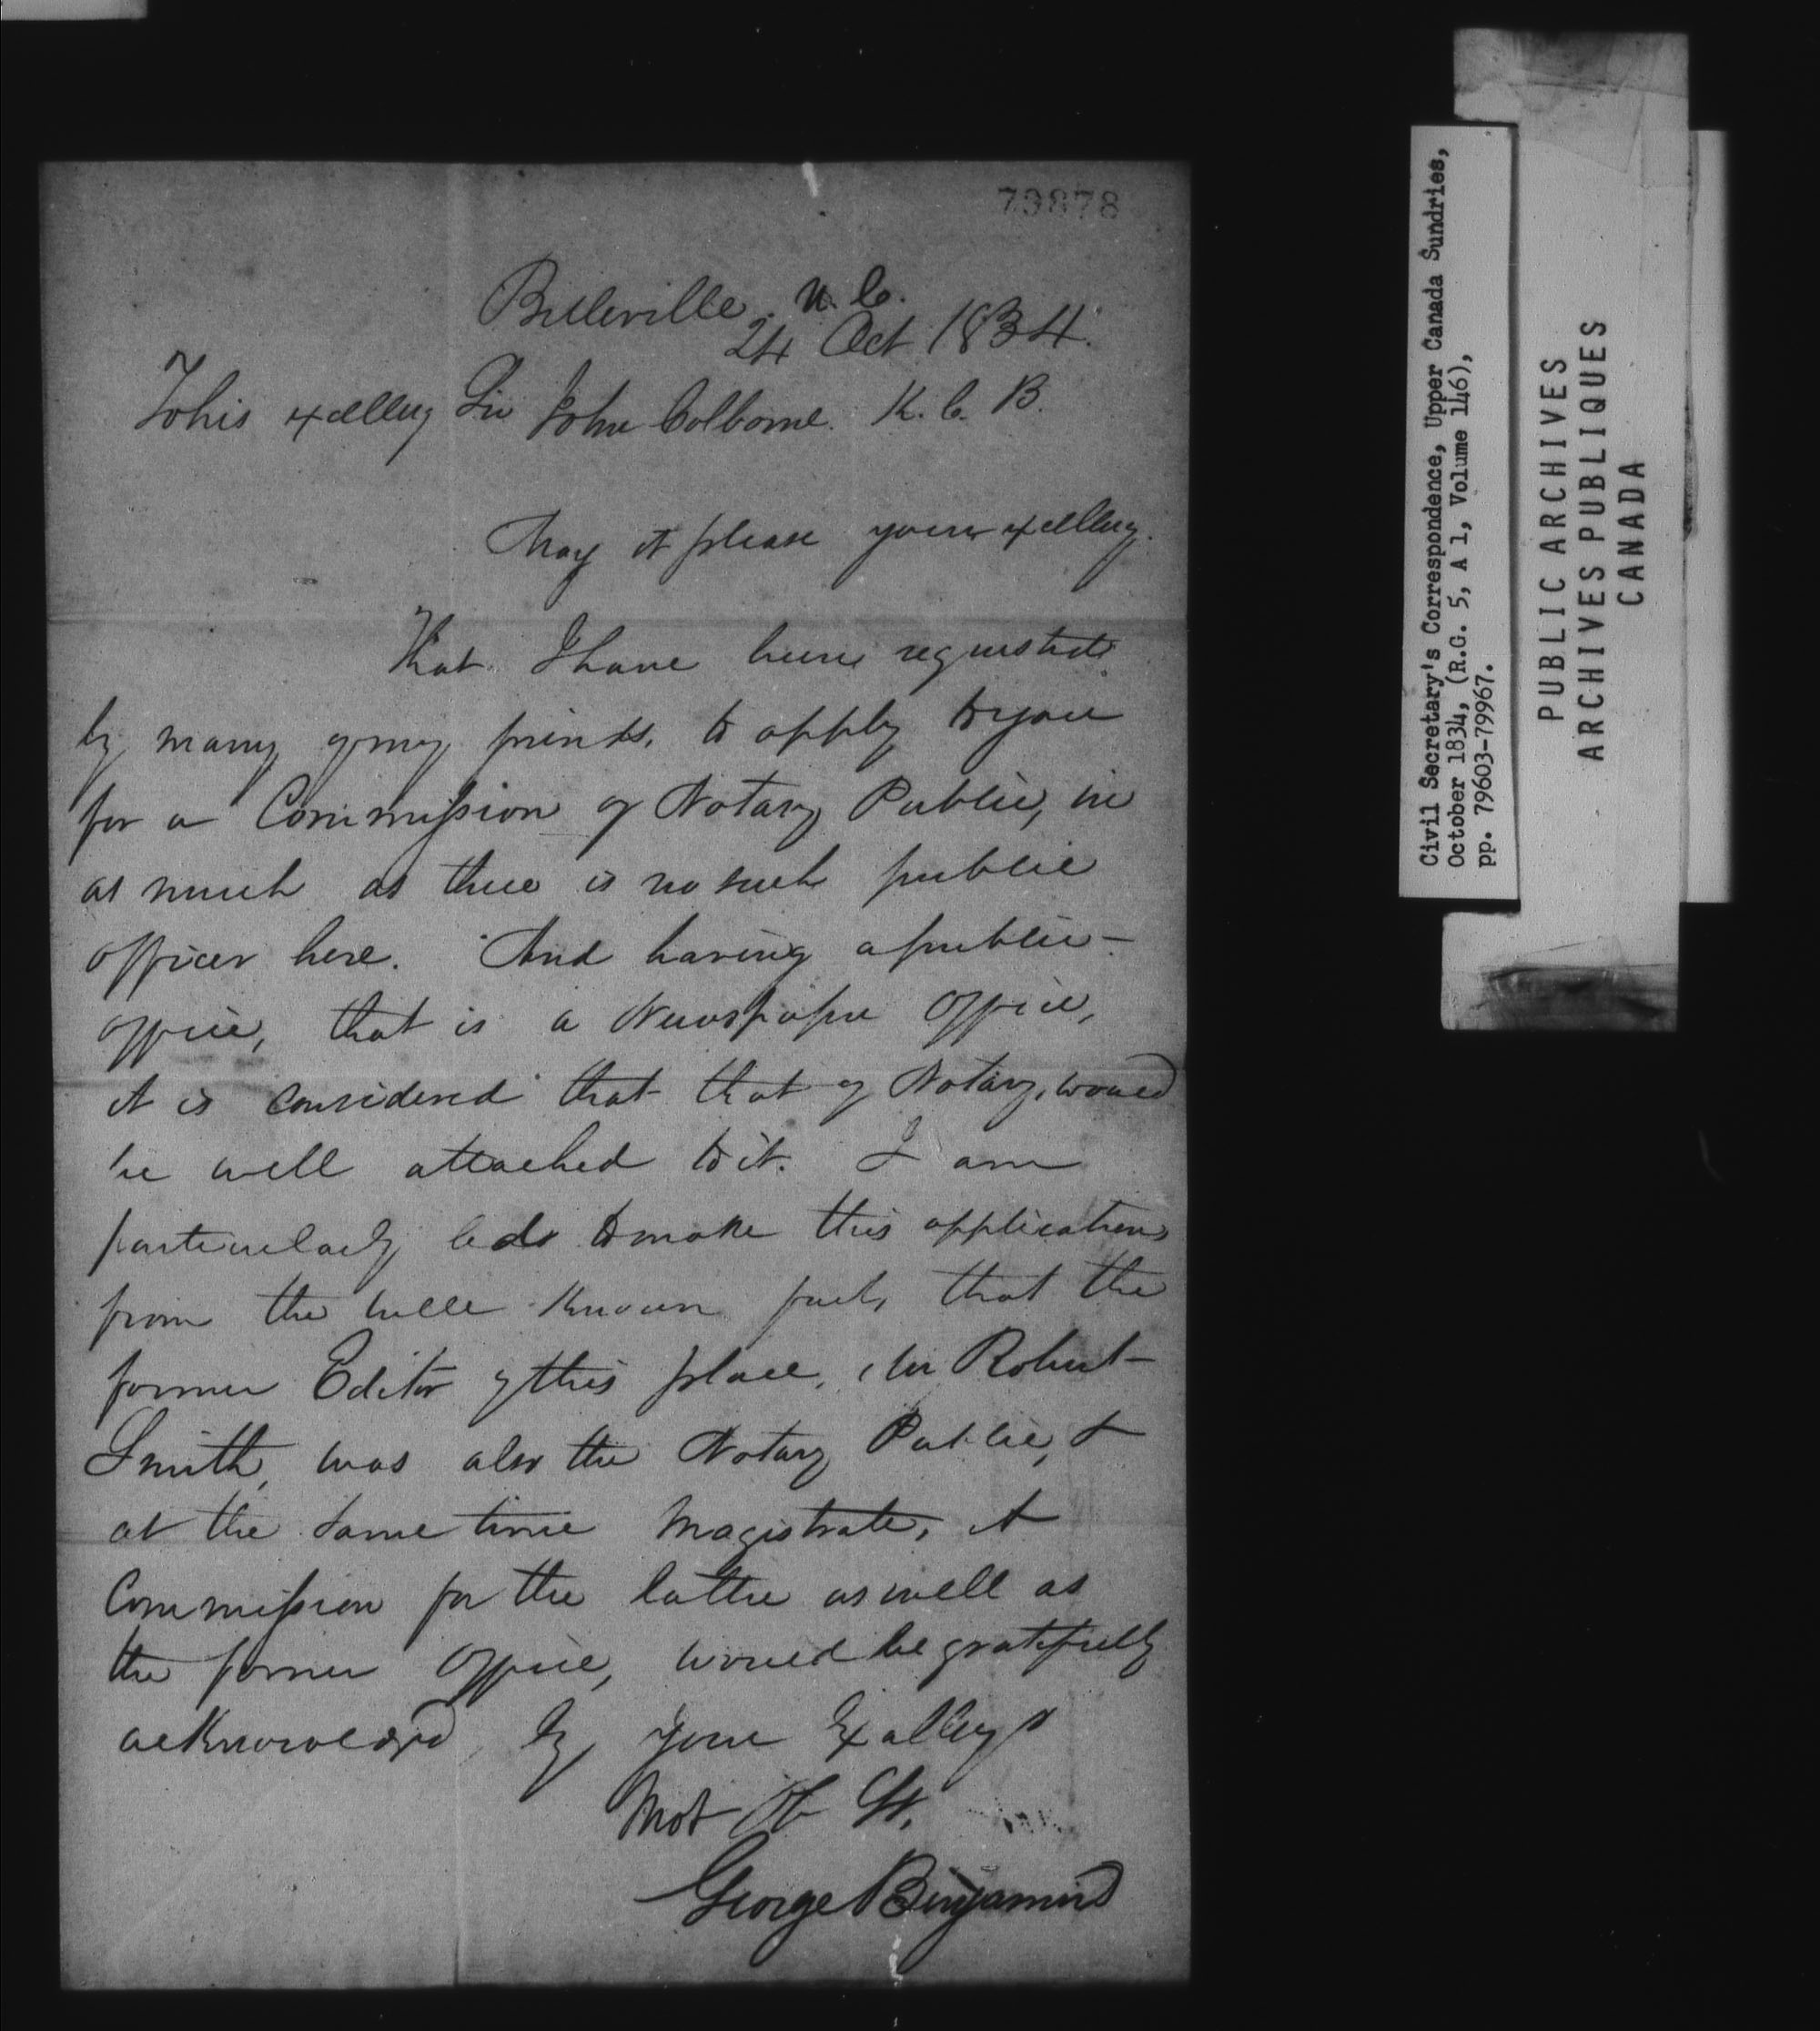 79878
Belleville. U. C.
24 Oct 1834.
To his Excellcy Sir John Colborne. K. C. B.
May it please your Excellcy.
That I have been requested
by many of my friends, to apply to you
for a Commission of Notary Public, in
as much as there is no such public
officer here. And having a public
office, that is a Newspaper Office,
it is considered that that of Notary, would
be well attached to it. I am
particularly led to make this application
from the well known fact, that the
former Editor of this place, Mr Robert
Smith, was also the Notary Public, &
at the same time Magistrate, A
Commission for the latter as well as
the former Office, would be gratefully
acknowledged by your Excellcys
Most Ob St.
George Benjamin
Civil Secretary's Correspondence, Upper Canada Sundries,
October 1834, (R.G. 5, A 1, Volume 146),
pp. 79603-79967.
PUBLIC ARCHIVES
ARCHIVES PUBLIQUES
CANADA